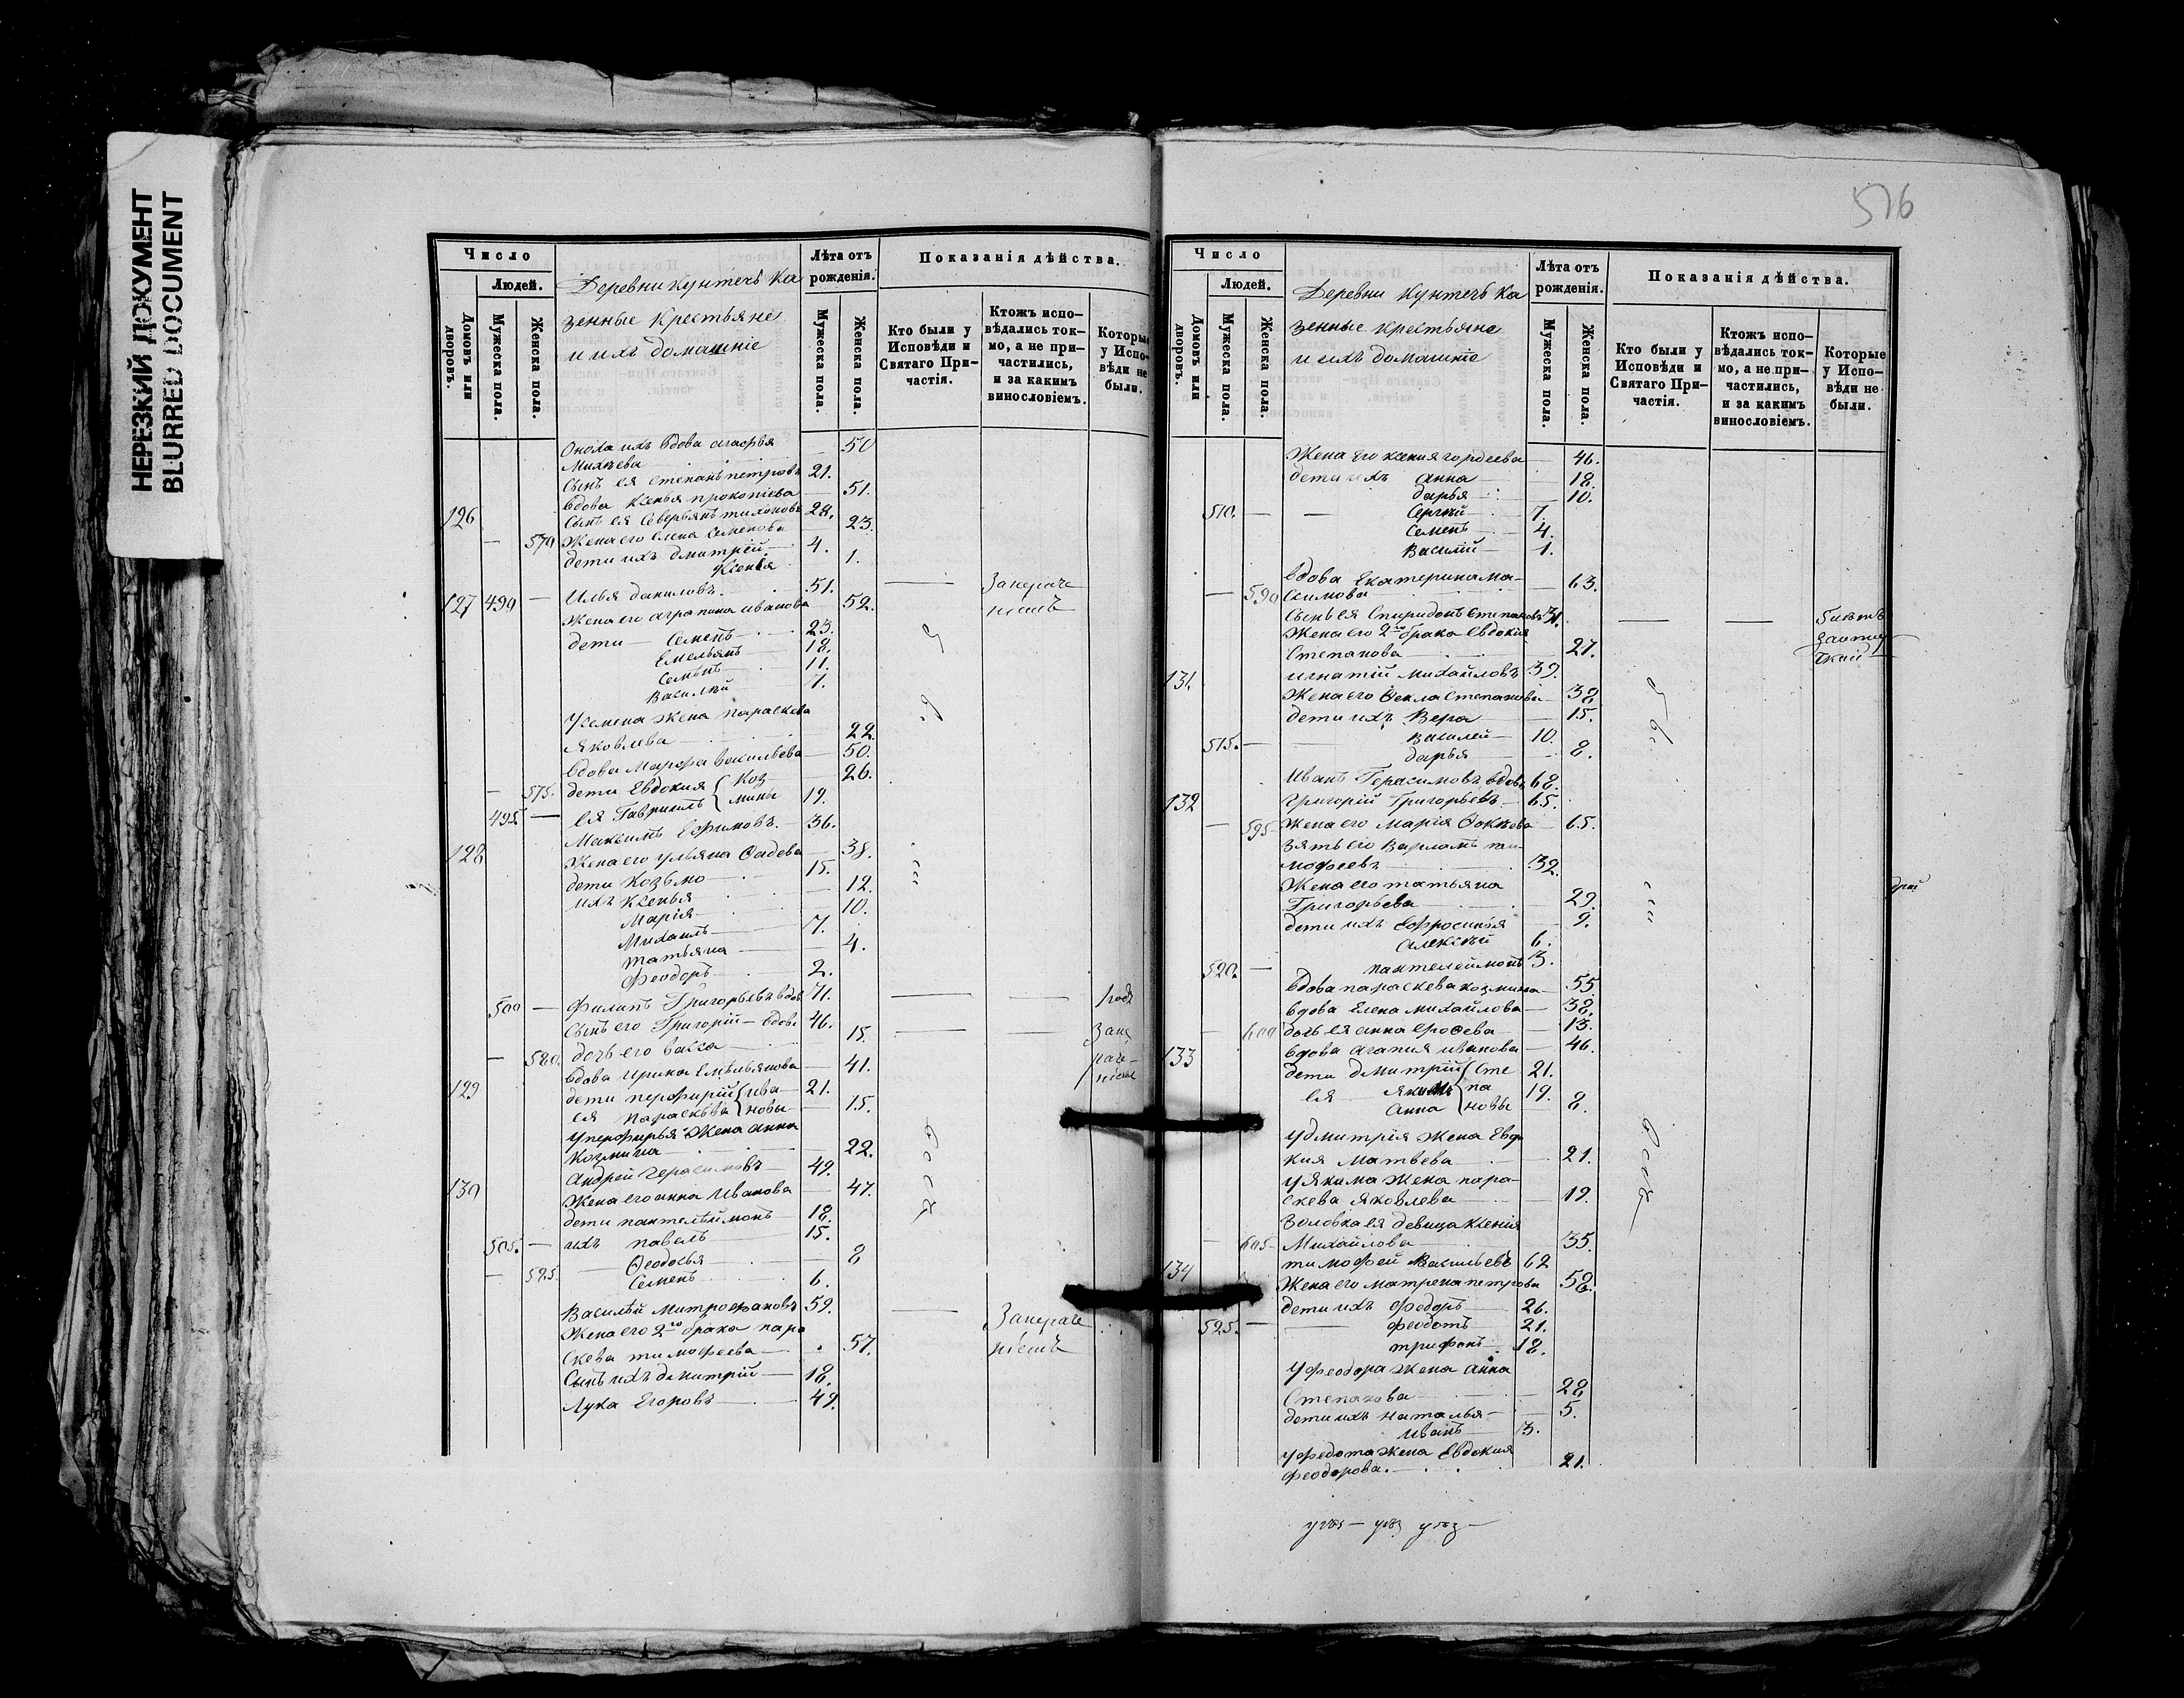 НЕРЕЗКИЙ ДОКУМЕНТ
BLURRED DOCUMENT
Число
Людей.
Домовъ или дворовъ.
Мужеска пола.
Женска пола.
Деревни Кунтечь Ка
зенные крестьяне
и ихъ домашніе
Лѣта отъ рожденія.
Мужеска пола.
Женска пола.
Показанія дѣйства.
Кто были у Исповѣди и Святаго Причастія.
Ктожъ исповѣдались токмо, а не причастились, и за какимъ винословіемъ.
Которые у Исповѣди не были.
Сноха ихъ вдова Агафья — 50
Михѣева
Сынъ ея Степанъ Петровъ 21.
Вдова Ксенья Прокопіева — 51.
126 Сынъ ея Северьянъ Тихоновъ 28.
— 570 Жена его Елена Семенова 23.
дети ихъ Дмитрій — 4.
Ксенья 1.
127 490 — Илья Даниловъ. 51. — За нераче
Жена его Аграпина Иванова 52. ніемъ
дети — Семенъ — 23.
Емельянъ — 18.
Семенъ — 11.
Василій 7.
У Семена жена Параскева
Яковлева — 22.
Вдова Марфа Васильева — 50.
— 575. дети Евдокия Коз — 26.
495 — ея Гавриилъ мины 19.
128 Максимъ Ефимовъ. — 36.
Жена его Ульяна Фадеева — 38.
дети Козьмо — 15.
ихъ Ксенья — 12.
Марія — 10.
Михаилъ — 7.
Татьяна — 4.
Феодоръ — 2.
500 — Филипъ Григорьевъ вдов 71. — —
Сынъ его Григорій — вдовъ 46. — За не
— 580. дочь его Васса — 15. раче-
Вдова Ирина Емельянова — 41. ніемъ
129 дети Перфирій Ива 21.
ея Параскева новы — 15.
У Перфирья жена Анна
Козмина — 22.
130 Андрей Герасимовъ — 49.
Жена его Анна Иванова — 47.
дети Пантелеймонъ — 18.
505. — ихъ Павелъ — 15.
— 585. — Феодосья — 8
Семенъ 6.
Василій Митрофановъ 59. — За нераче
Жена его 2го брака Пара
скева Тимофеева — 57. ніемъ
Сынъ ихъ Димитрій — 18.
Лука Егоровъ — 49.
516
Число
Людей.
Домовъ или дворовъ.
Мужеска пола.
Женска пола.
Деревни Кунтечь Ка
зенные крестьяне
и ихъ домашніе
Лѣта отъ рожденія.
Мужеска пола.
Женска пола.
Показанія дѣйства.
Кто были у Исповѣди и Святаго Причастія.
Ктожъ исповѣдались токмо, а не причастились, и за какимъ винословіемъ.
Которые у Исповѣди не были.
Жена его Ксения Гордеева — 46.
дети ихъ Анна — 18.
Дарья — 10.
510. — — Сергѣй — 7.
Семенъ — 4.
Василій — 1.
Вдова Екатерина Ма- — 63.
— 590 ксимова
Сынъ ея Спиридонъ Степановъ 31. — —
Жена его 2го брака Евдокия
Степанова — 27.
131. Игнатій Михайловъ 39.
Жена его Фекла Степанова — 38.
дети ихъ Вера — 15.
515. — Василей — 10.
Дарья — 8.
Иванъ Герасимовъ вдовъ 68.
132 Григорій Григорьевъ — 65.
— 595 Жена его Марія Фокѣева — 65.
Зять его Варламъ Ти-
мофеевъ — 32.
Жена его Татьяна
Григорьева — 29.
дети ихъ Ефросинья — 9.
Алексѣй 6.
520. — Пантелеймонъ 3.
Вдова Параскева Козмина — 55
Вдова Елена Михайлова — 38.
— 600 дочь ея Анна Ерофева — 13.
133 Вдова Агапия Иванова — 46.
дети Дмитрій Сте 21.
ея Якимъ па 19.
Анна новы 8.
У Дмитрія жена Евдо
кия Матвева — 21.
У Якима жена Пара-
скева Яковлева — 19.
Золовка ея девица Ксенія
— 605 Михайлова 35.
134 Тимофей Васильевъ 62
Жена его Матрена Петрова 58.
дети ихъ Федоръ — 26.
525. — — Феодотъ — 21.
Трифонъ — 18.
У Феодора жена Анна
Степанова — 28
дети ихъ Наталья — 5.
Иванъ — 3.
У Федота жена Евдокия
Феодорова. — 21.